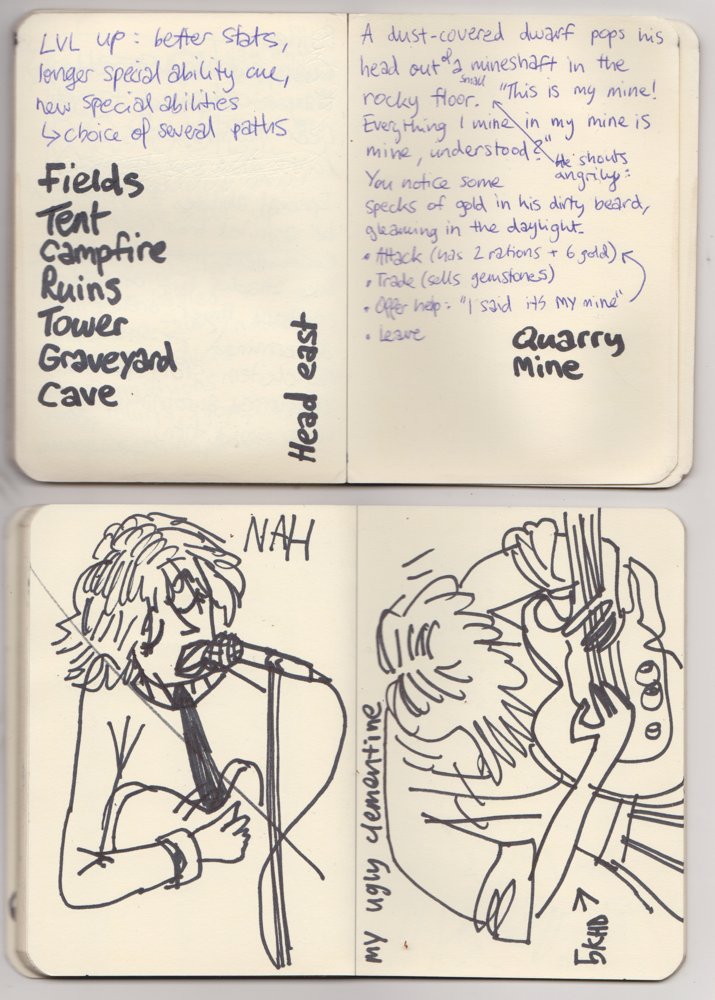 LVL up: better stats,
longer special ability one,
new special abilities
↳ choice of several paths
Fields
Tent
Campfire
Ruins
Tower
Graveyard
Cave
Head east
A dust-covered dwarf pops his
head out of a mineshaft in the
small
rocky floor. "This is my mine!
Everything I mine in my mine is
mine, understood?"
He shouts
angrily:
You notice some
specks of gold in his dirty beard,
gleaming in the daylight.
• Attack (has 2 rations + 6 gold)
• Trade (sells gemstones)
• Offer help: "I said it's MY mine"
• Leave
Quarry
Mine
NAH
my ugly clementine
5KHD